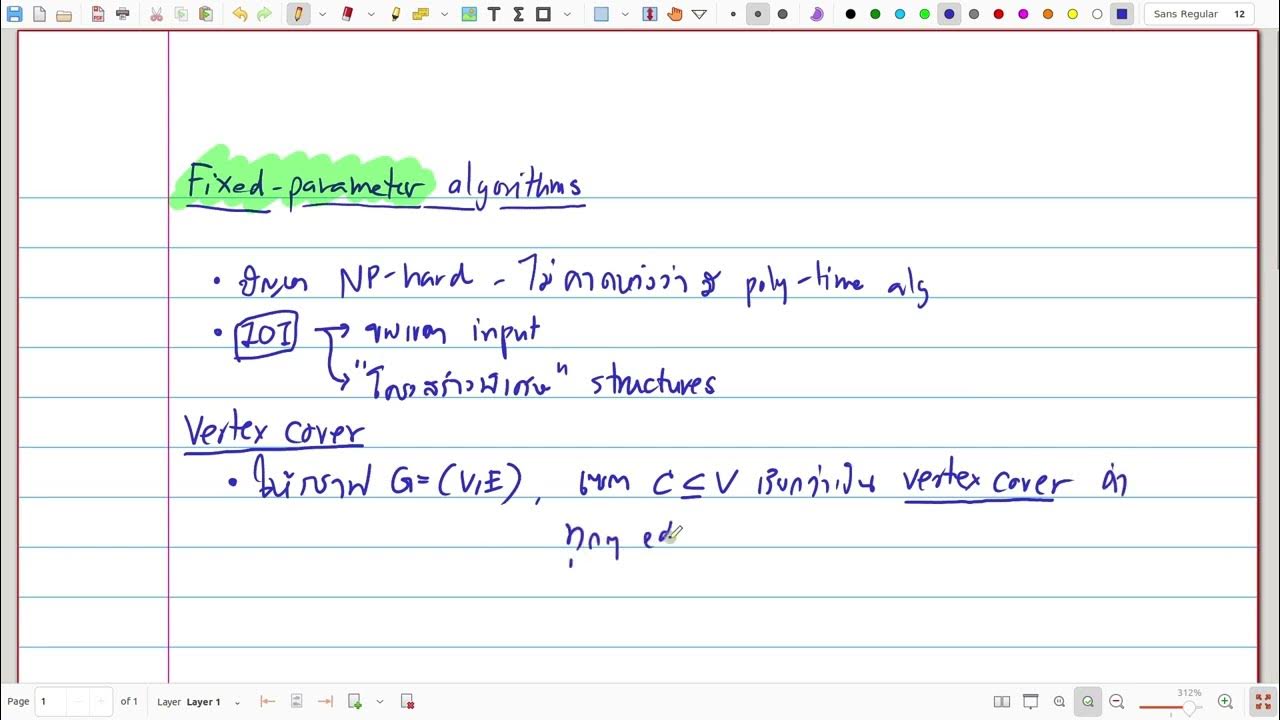 Sans Regular 12
Fixed-parameter algorithms
• ปัญหา NP-hard - ไม่คาดหวังว่า มี poly-time alg
• IOI → ขนาด input
→ "โครงสร้างพิเศษ" structures
Vertex Cover
• ให้กราฟ G=(V,E), เซต C ⊆ V เรียกว่าเป็น vertex cover ถ้า
ทุกๆ ed
Page 1 of 1 Layer Layer 1 312%